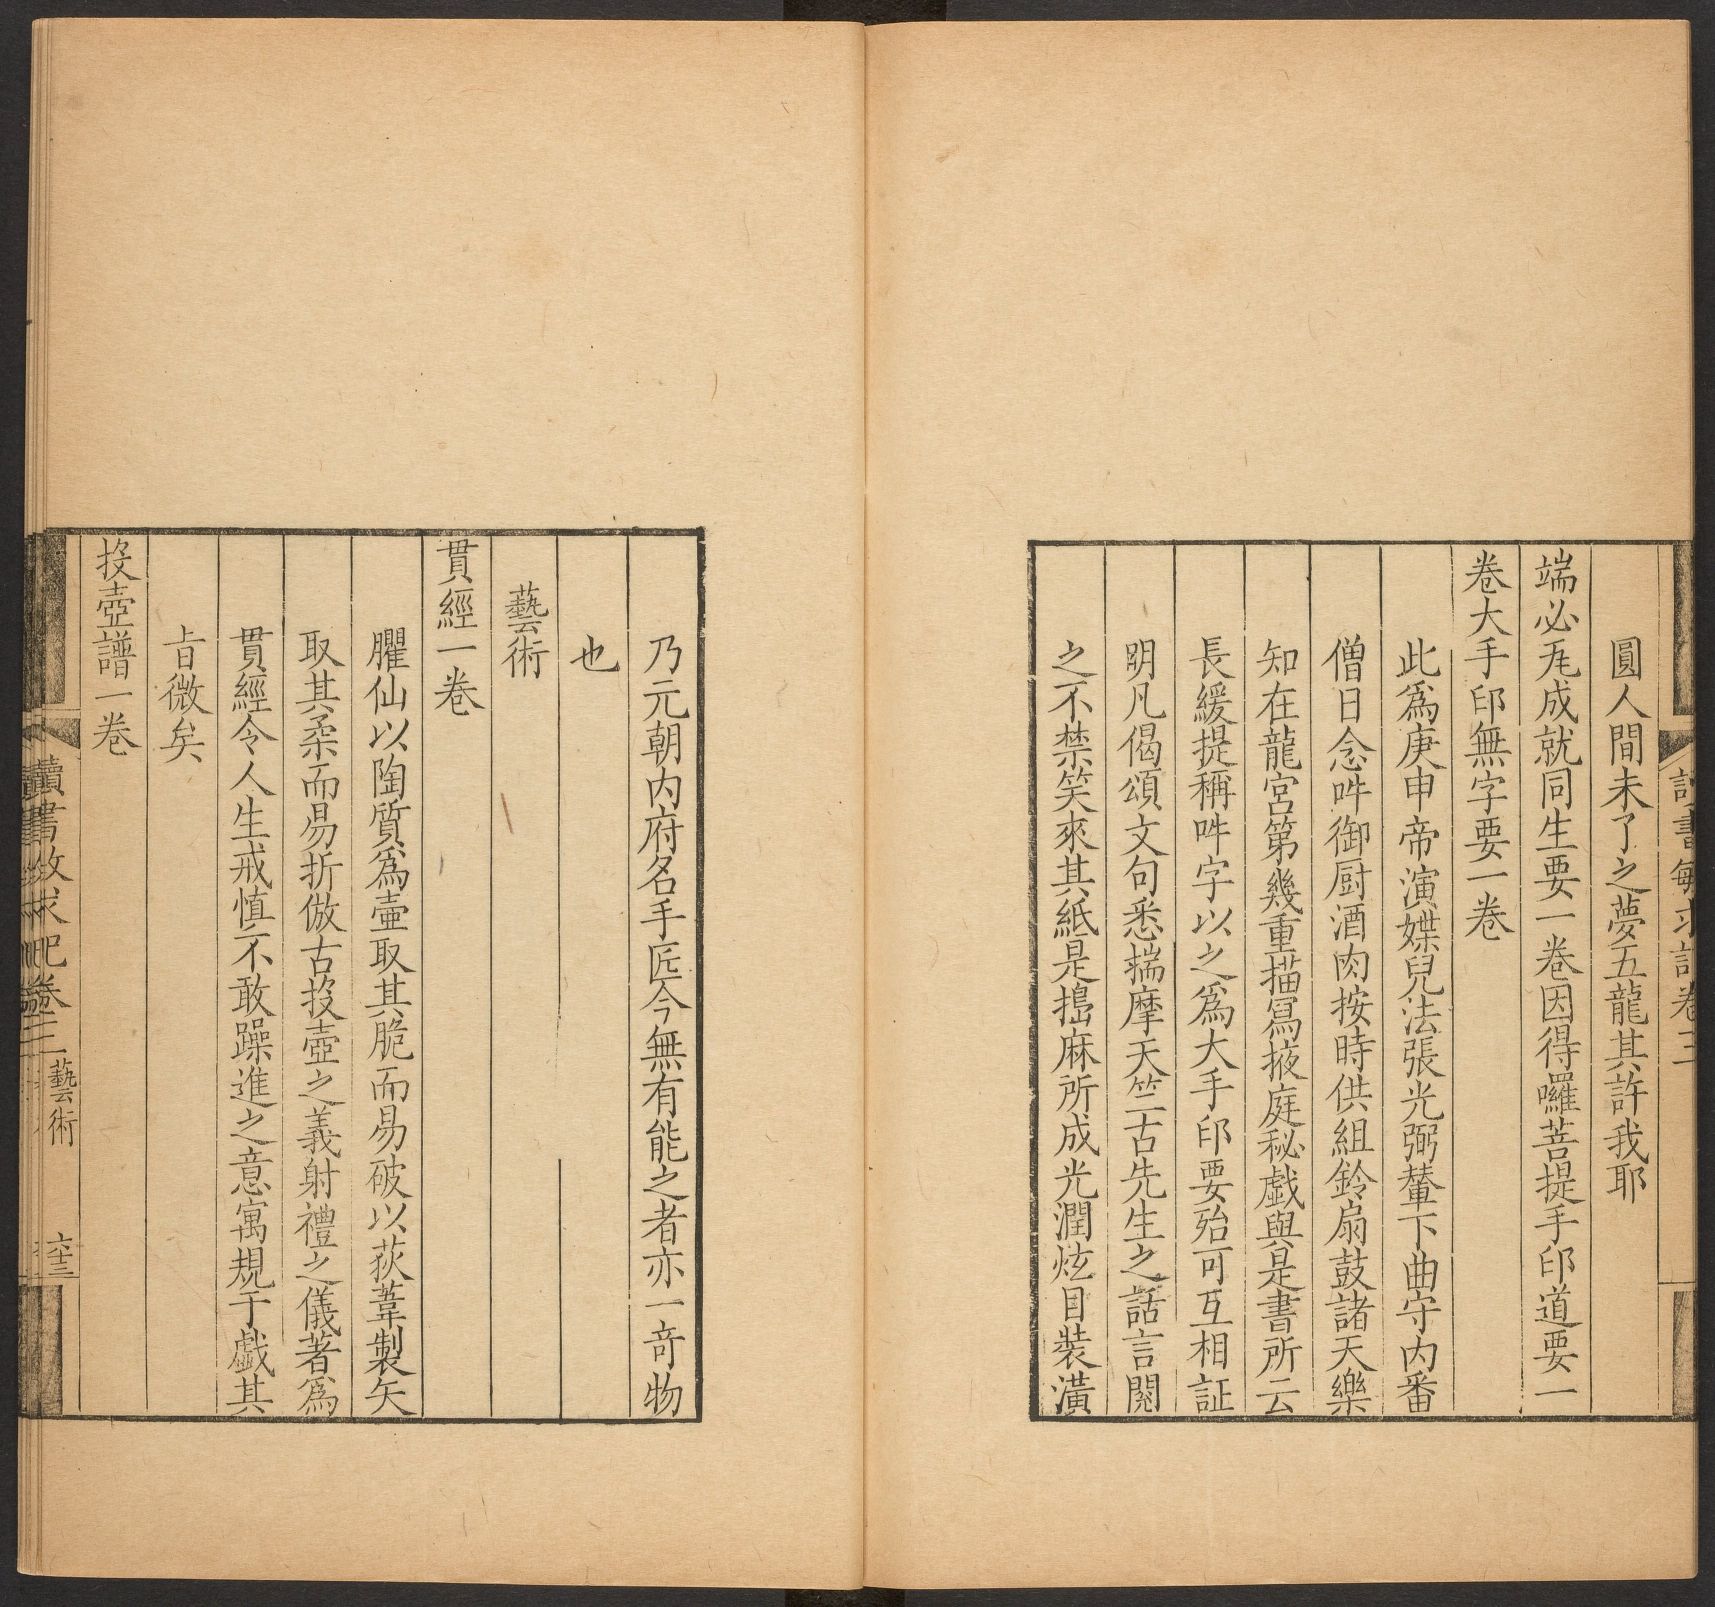 讀書敏求記卷三
圓人間未了之夢五龍其許我耶
端必𤓰成就同生要一卷因得囉菩提手印道要一
卷大手印無字要一卷
此爲庚申帝演媟兒法張光弼輦下曲守内番
僧日念吽御厨酒肉按時供組鈴扇鼓諸天樂
知在龍宮第幾重描寫掖庭秘戲與是書所云
長緩提稱吽字以之爲大手印要殆可互相証
明凡偈頌文句悉揣摩天竺古先生之話言閱
之不禁笑來其紙是搗麻所成光潤炫目裝潢
乃元朝内府名手匠今無有能之者亦一奇物
也
藝術
貫經一卷
臞仙以陶質爲壷取其脆而易破以荻葦製矢
取其柔而易折倣古投壺之義射禮之儀著爲
貫經令人生戒慎不敢躁進之意寓規于戲其
旨微矣
投壺譜一卷
讀書敏求記卷三 藝術 六十三